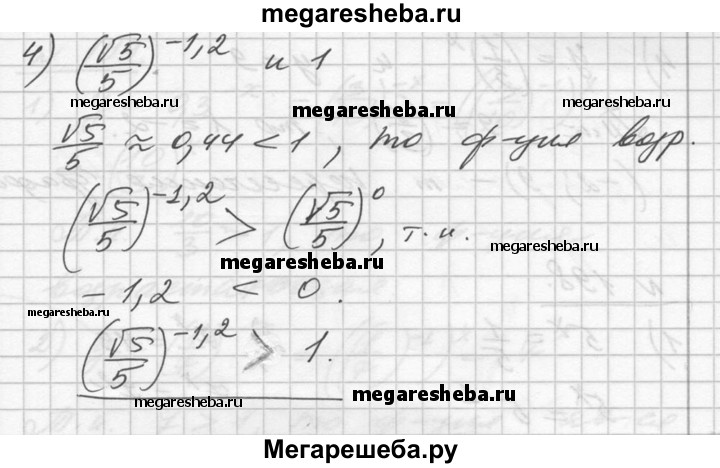 megaresheba.ru
4) (√5/5)^−1,2 и 1
megaresheba.ru megaresheba.ru megaresheba.ru
√5/5 ≈ 0,44 < 1, то ф-ция возр.
(√5/5)^−1,2 > (√5/5)^0, т.к.
megaresheba.ru megaresheba.ru
−1,2 < 0.
megaresheba.ru megaresheba.ru
(√5/5)^−1,2 > 1.
megaresheba.ru megaresheba.ru
Мегарешеба.ру